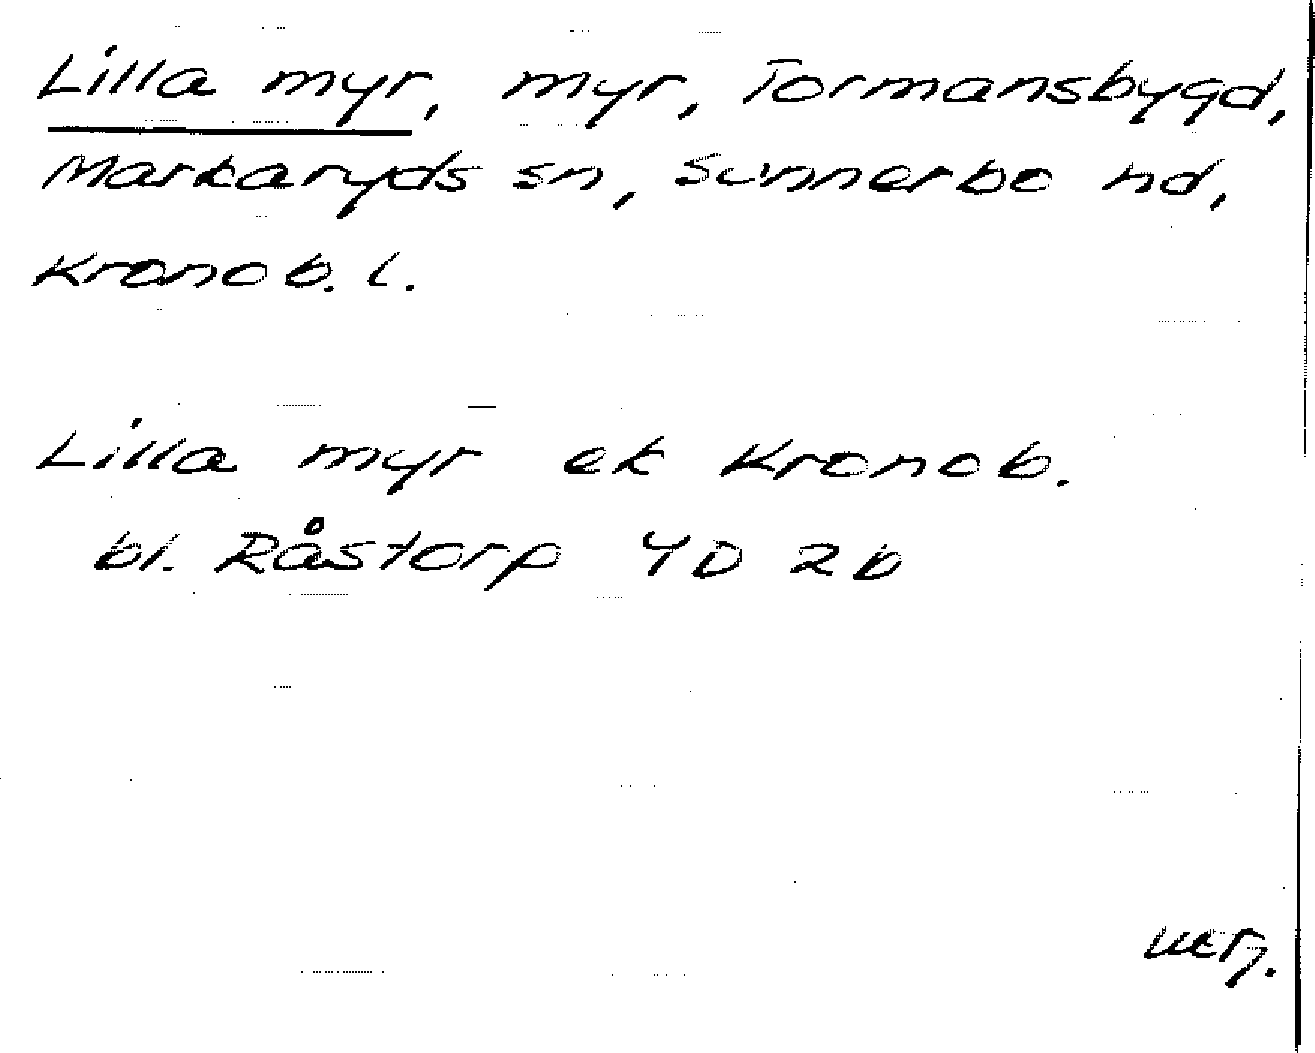 Lilla myr, myr, Tormansbygd,
Markaryds sn, Sunnerbo hd,
Kronob. l.
Lilla myr ek Kronob.
bl. Råstorp 4D 2b